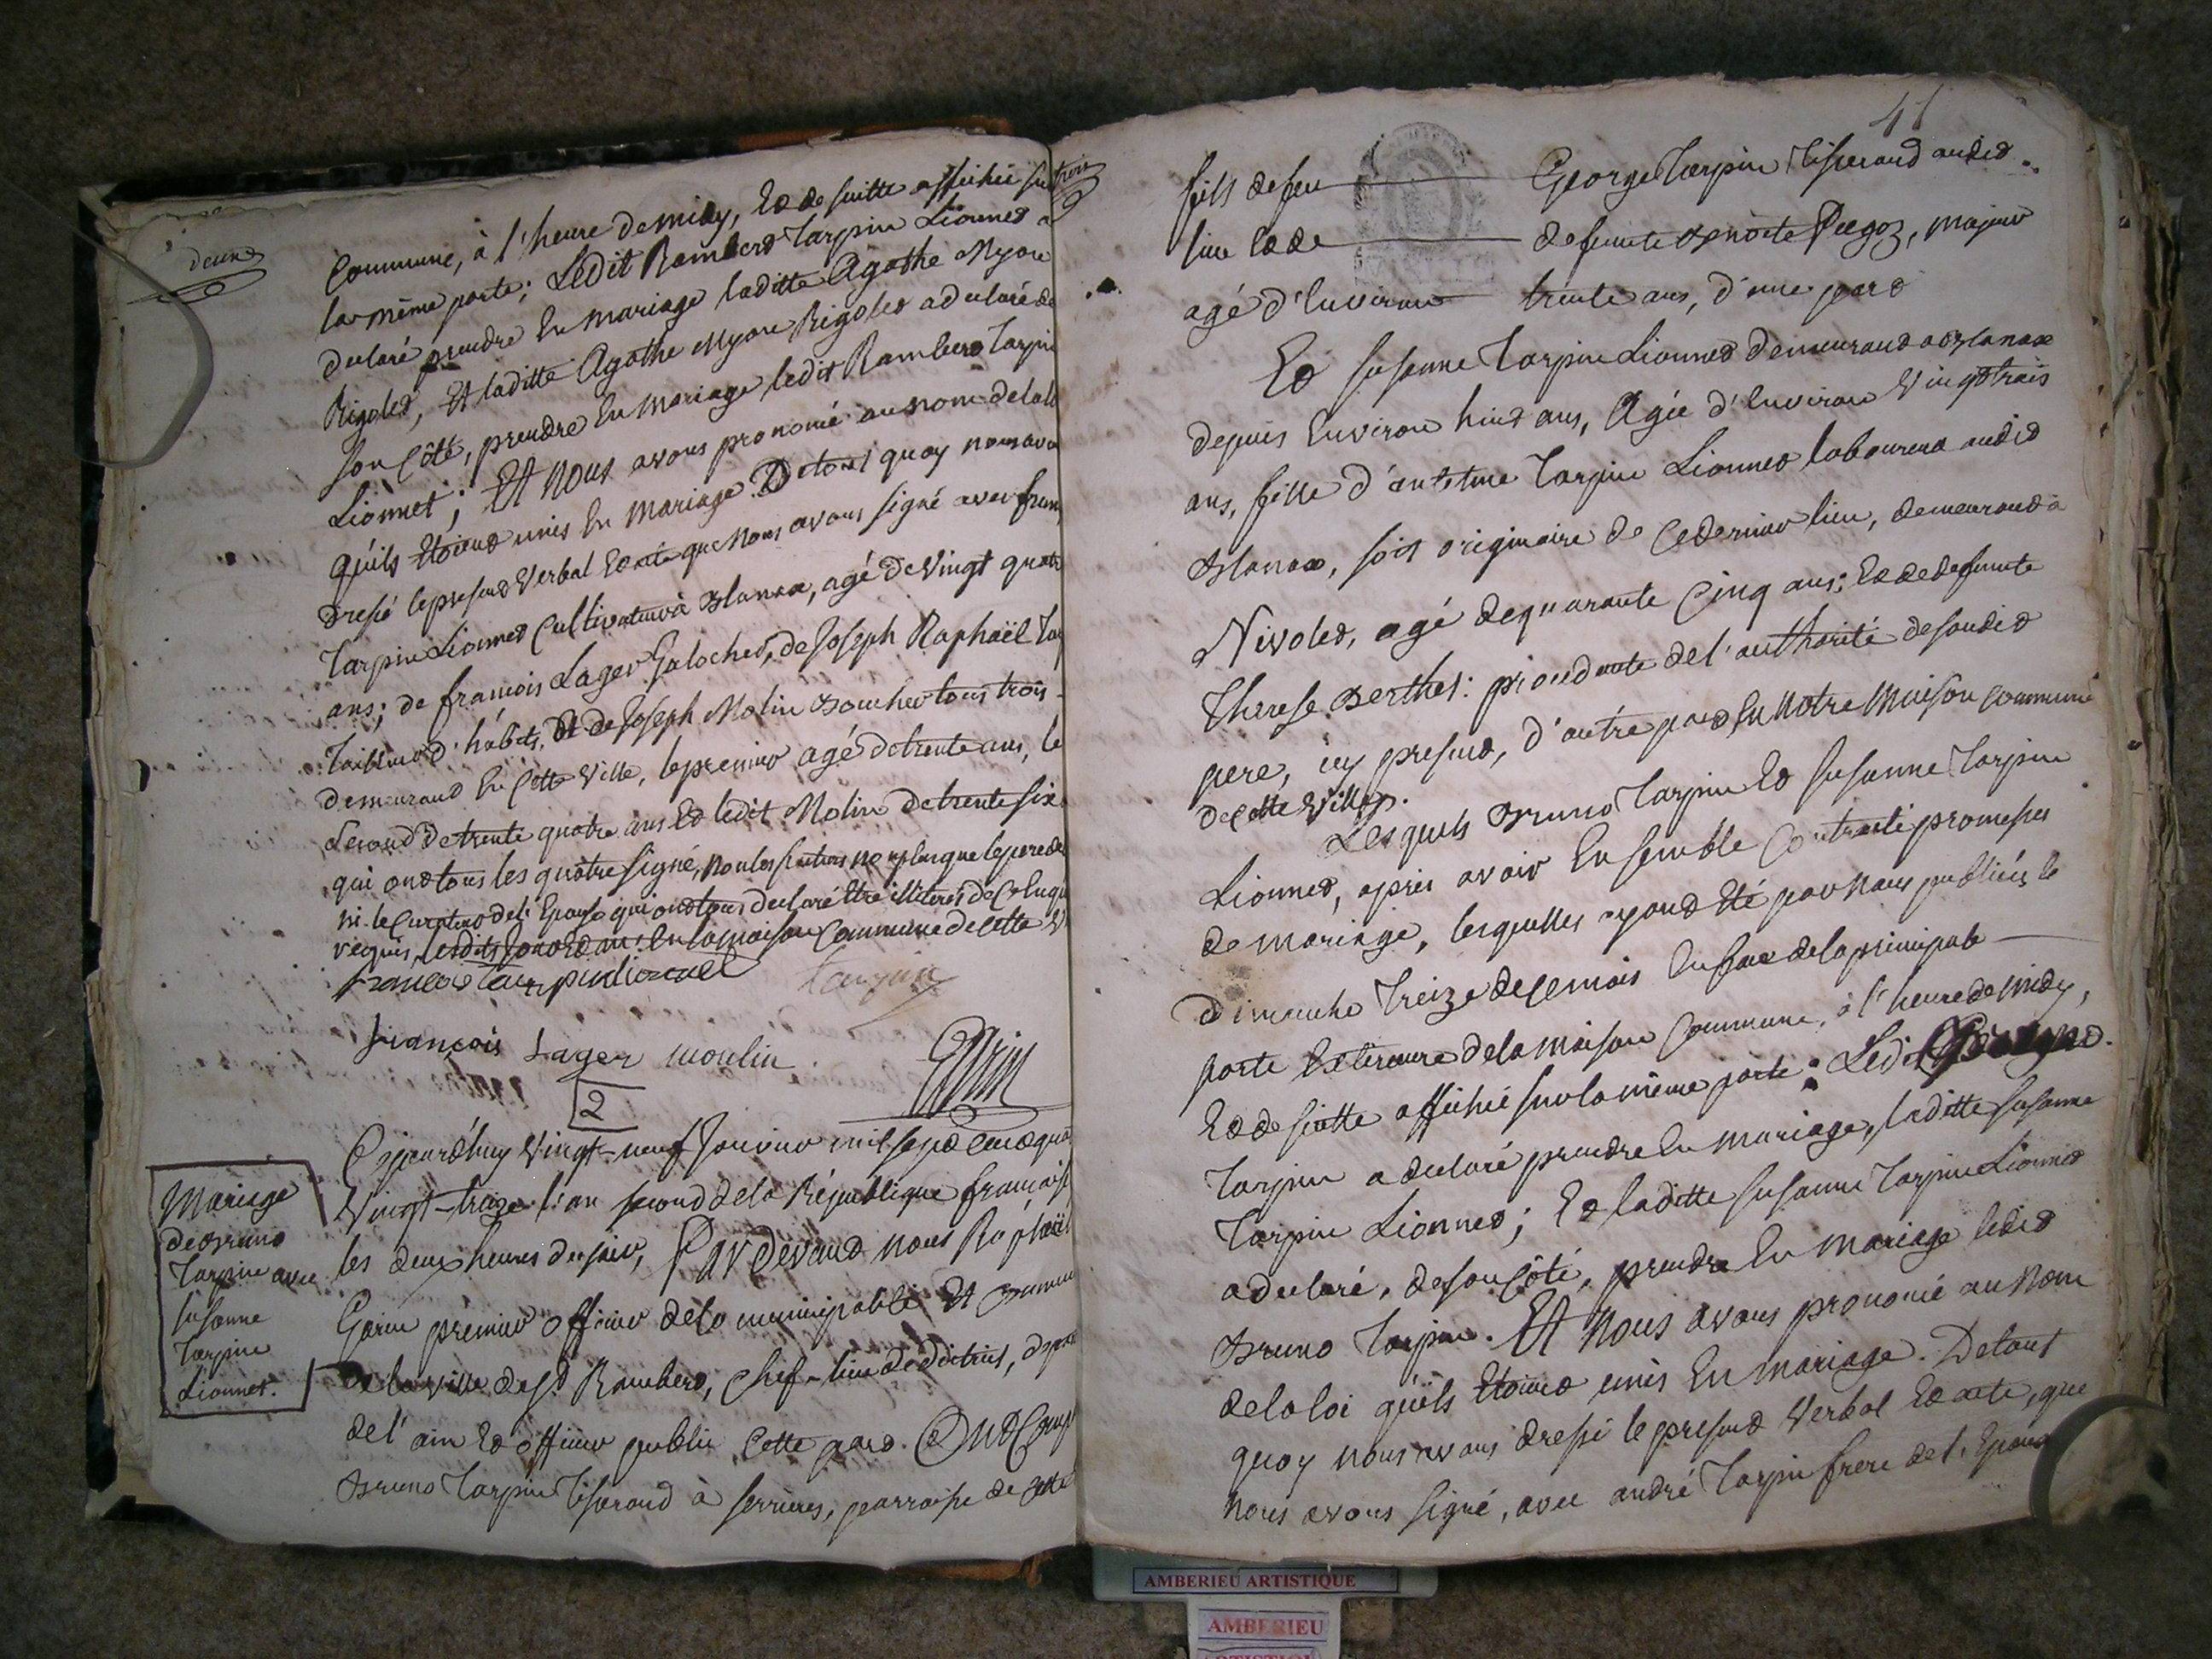 deux
Commune, à l'heure de midy, Et de suitte affichée sur
la même porte; Ledit Rambert Tarpin Lionnet a
declaré prendre En mariage laditte Agathe Myon
Rigolet, Et laditte Agathe Myon Rigolet a declaré de
son Côté, prendre En mariage ledit Rambert Tarpin
Lionnet; Et nous avons prononcé au nom de la loi
qu'ils Etoient unis En mariage. De tout quoy nous avons
dressé le present Verbal Et acte que nous avons signé avec
Tarpin Lionnet Cultivateur à Blanaz, agé de Vingt quatre
ans; de françois Lager Galocher, de Joseph Raphaël
Tailleur d'habits, Et de Joseph Molin Boucher tous trois
demeurant En Cette Ville, le premier agé de trente ans, le
second de trente quatre ans Et ledit Molin de trente six
qui ont tous les quatre signé, non les parties non plus que le pere de
ni le Curateur de l'Epouse qui ont tous declaré Etre illiterés de Ce Enquis
requis, lesdits jour Et an: En la maison Commune de Cette
françois tarpin lionnet tarpin
françois Lager moulin
Garin
2
Mariage
de Bruno
Tarpin avec
susanne
Tarpin
Lionnet.
Cejourd'huy Vingt-neuf Janvier mil sept Cent quatre
Vingt-treize l'an second de la République française
les deux heures du soir, Par devant nous Raphaël
Garin premier officier de la municipalité Et
de la Ville de St Rambert, Chef-lieu de district,
de l'ain Et officier public Cette part. Ont Comparu
Bruno Tarpin Tisserand à serrieres, parroisse de Cette
41
fils de feu George Tarpin Tisserand audit
lieu Et de defunte Benoite Pugoz, majeur
agé d'Environ trente ans, d'une part
Et susanne Tarpin Lionnet demeurant a Blanaz
depuis Environ huit ans, Agée d'Environ Vingt trois
ans, fille d'antelme Tarpin Lionnet laboureur audit
Blanaz, soit originaire de Ce dernier lieu, demeurant à
Nivolet, agé de quarante Cinq ans; Et de defunte
Therese Berthet: procedante de l'authorité de sondit
pere, icy present, d'autre part, En notre Maison commune
de Cette Ville.
Lesquels Bruno Tarpin Et susanne Tarpin
Lionnet, après avoir Ensemble Contracté promesses
de mariage, lesquelles ayant Eté par Nous publiées le
Dimanche Treize de Ce mois En face de la principale
porte Exterieure de la Maison Commune, à l'heure de midy,
Et de suitte affichée sur la même porte: Ledit
Tarpin a declaré prendre En mariage, laditte susanne
Tarpin Lionnet; Et laditte susanne Tarpin Lionnet
a declaré, de son Côté, prendre En mariage ledit
Bruno Tarpin. Et Nous avons prononcé au Nom
de la loi qu'ils Etoient unis En mariage. De tout
quoy nous avons dressé le present Verbal Et acte, que
nous avons signé, avec andré Tarpin frere de l'Epoux
AMBERIEU ARTISTIQUE
AMBERIEU
ARTISTIQUE